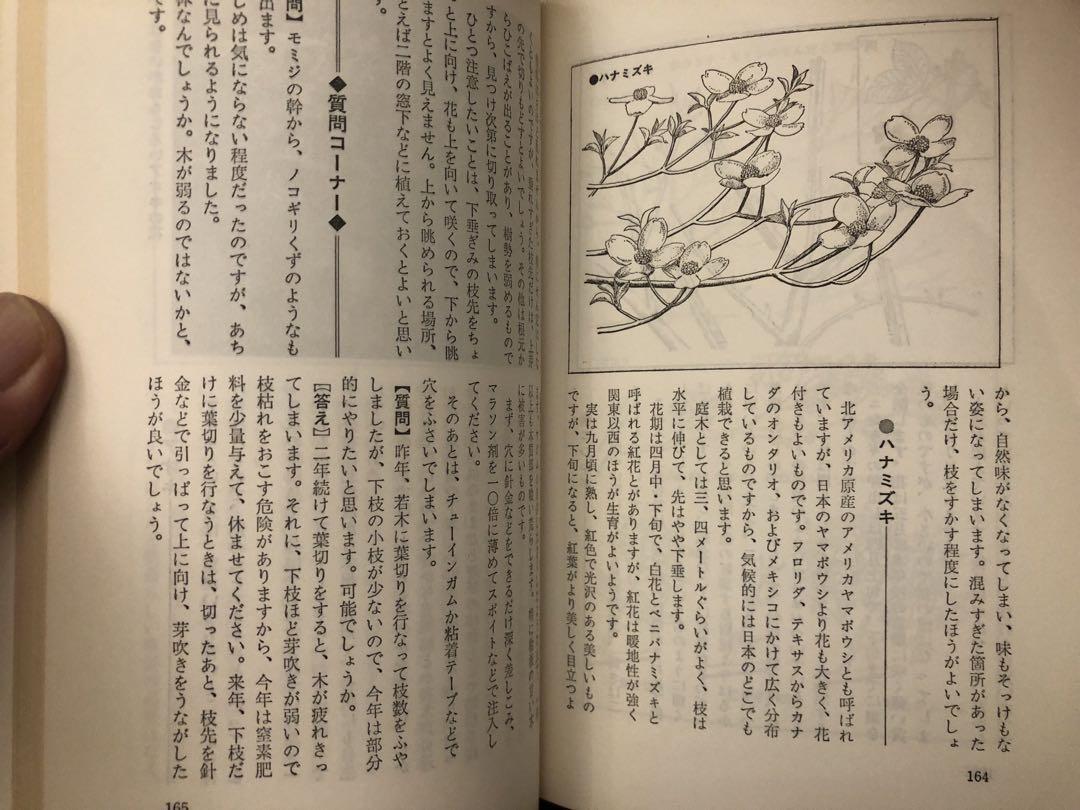 ●ハナミズキ
から、自然味がなくなってしまい、味もそっけもな
い姿になってしまいます。混みすぎた箇所があった
場合だけ、枝をすかす程度にしたほうがよいでしょ
う。
●ハナミズキ
北アメリカ原産のアメリカヤマボウシとも呼ばれ
ていますが、日本のヤマボウシより花も大きく、花
付きもよいものです。フロリダ、テキサスからカナ
ダのオンタリオ、およびメキシコにかけて広く分布
しているものですから、気候的には日本のどこでも
植栽できると思います。
庭木としては三、四メートルぐらいがよく、枝は
水平に伸びて、先はやや下垂します。
花期は四月中・下旬で、白花とベニバナミズキと
呼ばれる紅花とがありますが、紅花は暖地性が強く
関東以西のほうが生育がよいようです。
実は九月頃に熟し、紅色で光沢のある美しいもの
ですが、下旬になると、紅葉がより美しく目立つよ
164
の先で切りもどすとよいでしょう。その他は根元か
らひこばえが出ることがあり、樹勢を弱めるもので
すから、見つけ次第に切り取ってしまいます。
ひとつ注意したいことは、下垂ぎみの枝先をちょ
と上に向け、花も上を向いて咲くので、下から眺
ますとよく見えません。上から眺められる場所、
とえば二階の窓下などに植えておくとよいと思い
す。
◆質問コーナー◆
問】モミジの幹から、ノコギリくずのようなも
出ます。
じめは気にならない程度だったのですが、あち
に見られるようになりました。
なんでしょうか。木が弱るのではないかと、
です。
に被害が多いものです。
まず、穴に針金などをできるだけ深く差しこみ、
マラソン剤を一〇倍に薄めてスポイトなどで注入し
てください。
そのあとは、チューインガムか粘着テープなどで
穴をふさいでしまいます。
【質問】昨年、若木に葉切りを行なって枝数をふや
しましたが、下枝の小枝が少ないので、今年は部分
的にやりたいと思います。可能でしょうか。
【答え】二年続けて葉切りをすると、木が疲れきっ
てしまいます。それに、下枝ほど芽吹きが弱いので
枝枯れをおこす危険がありますから、今年は窒素肥
料を少量与えて、休ませてください。来年、下枝だ
けに葉切りを行なうときは、切ったあと、枝先を針
金などで引っぱって上に向け、芽吹きをうながした
ほうが良いでしょう。
165